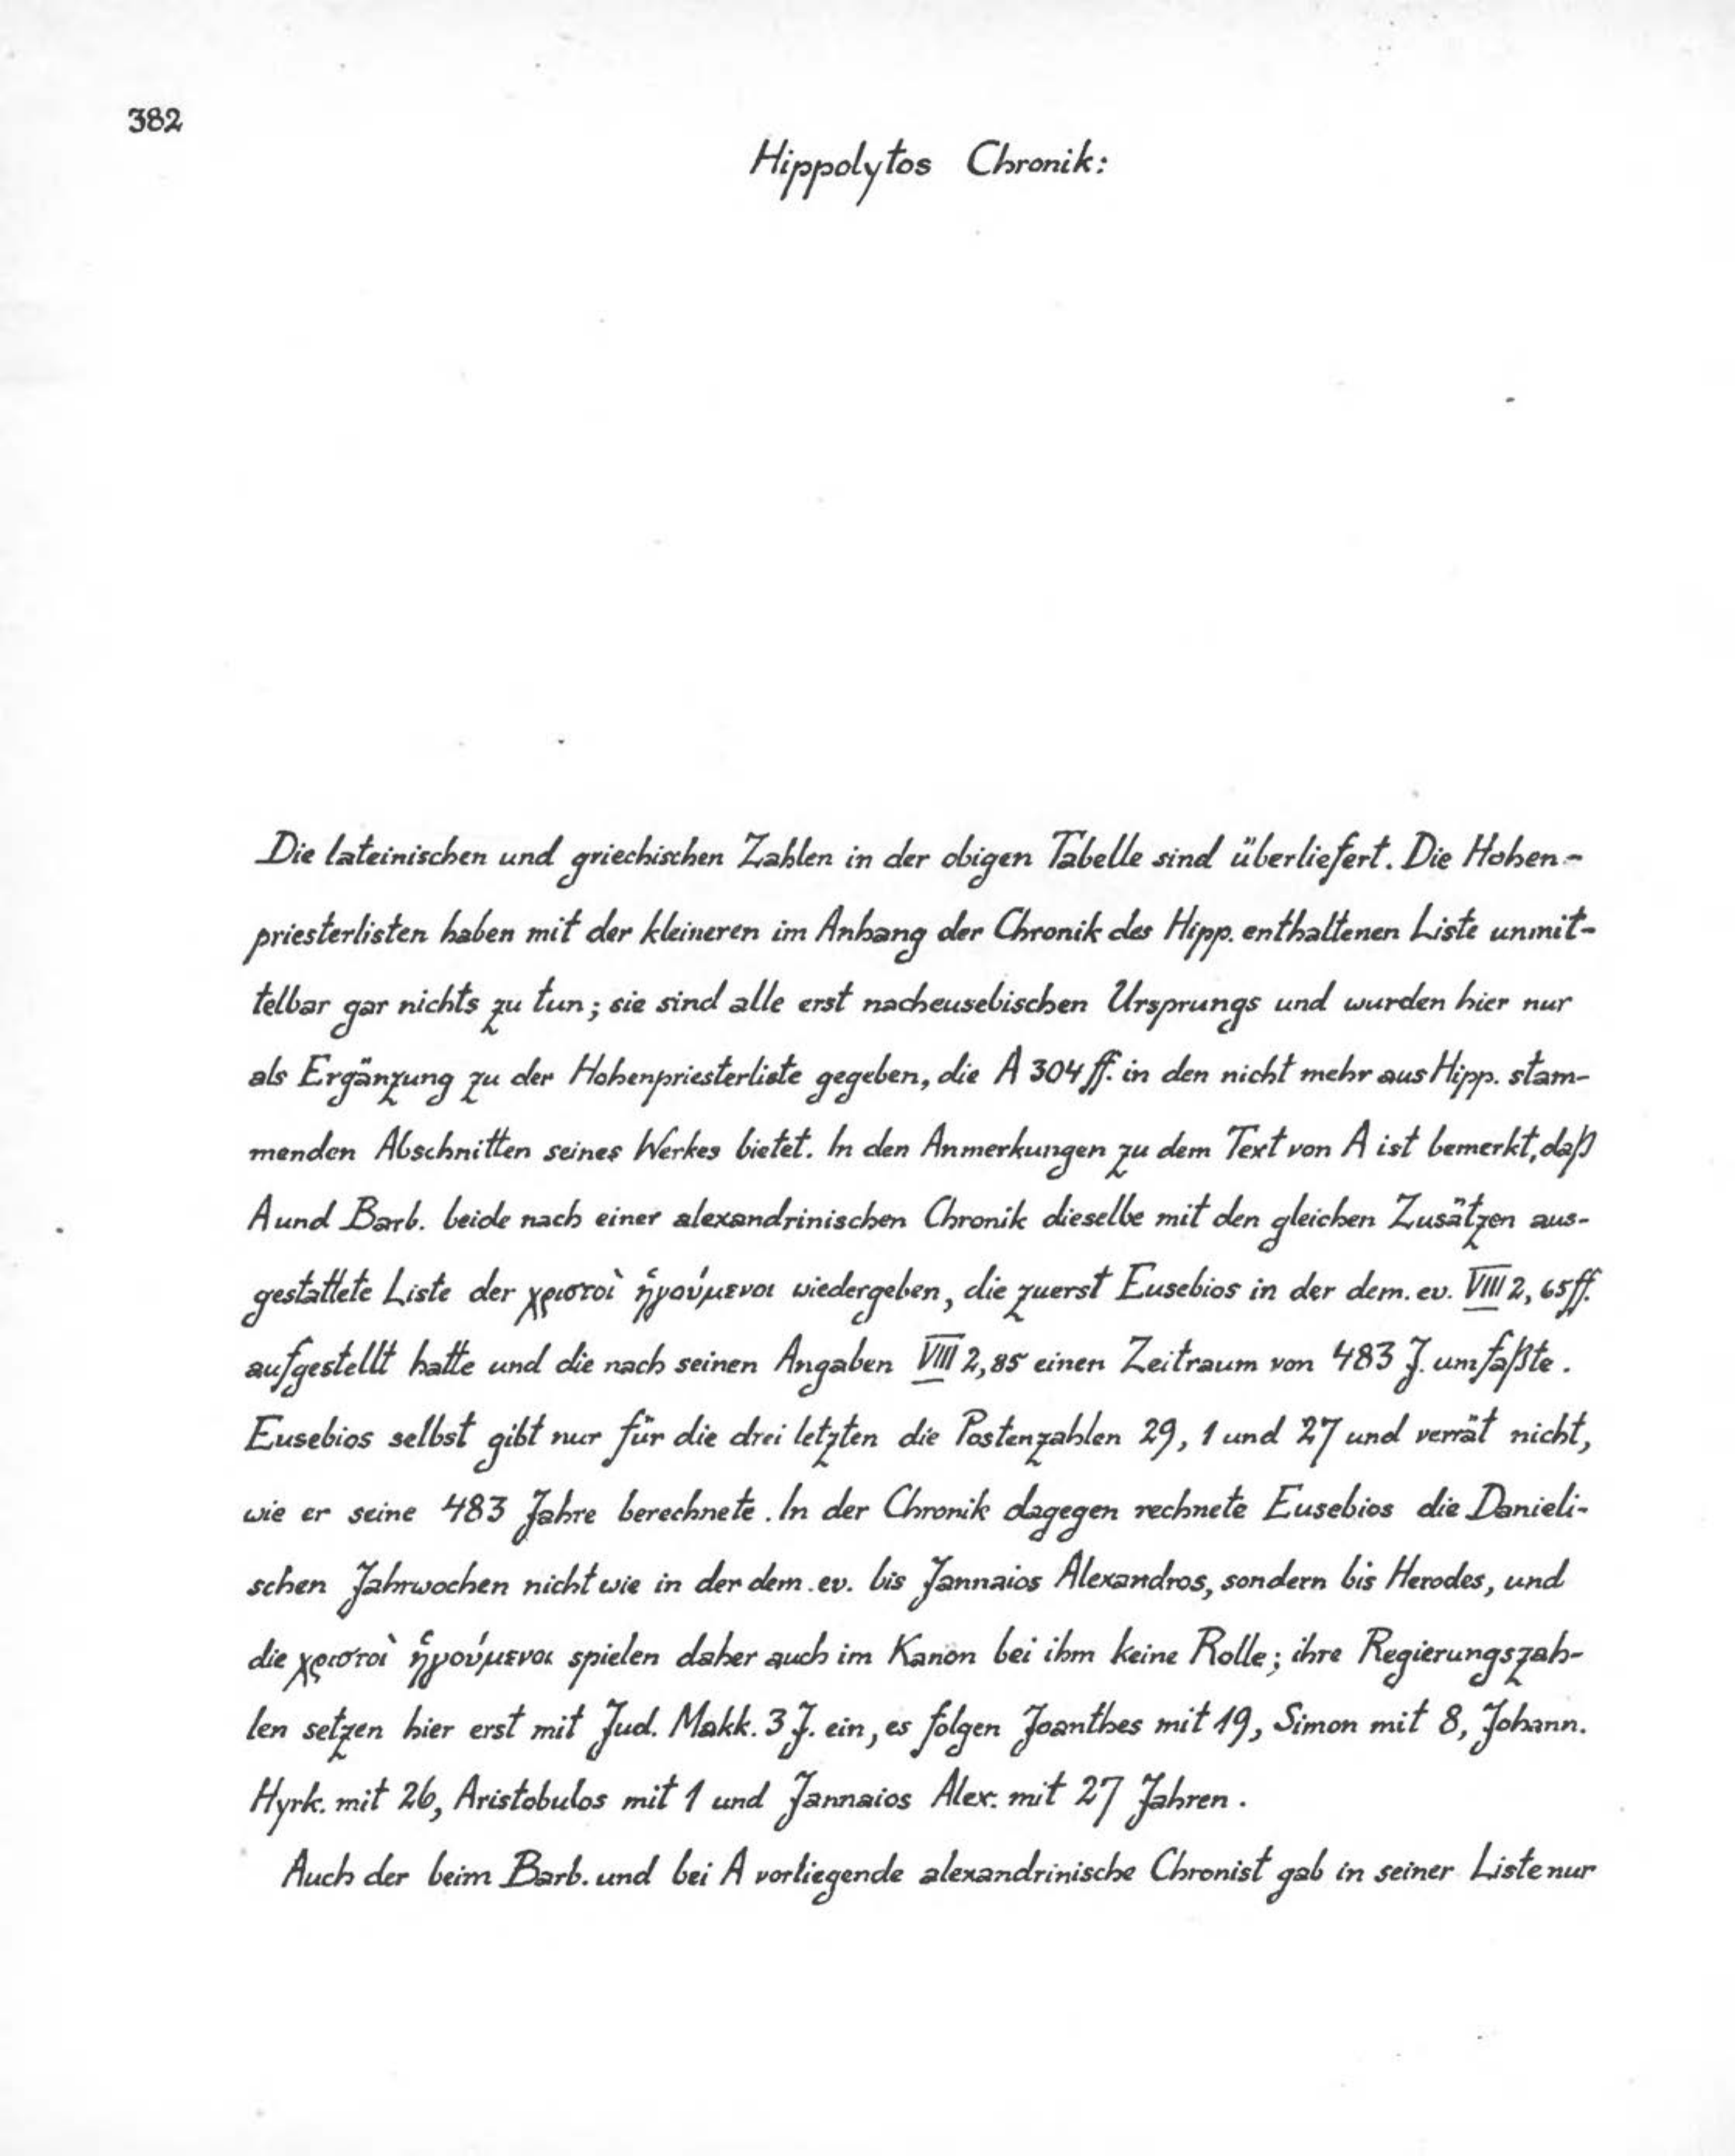 382
Hippolytos Chronik:
Die lateinischen und griechischen Zahlen in der obigen Tabelle sind überliefert. Die Hohen-
priesterlisten haben mit der kleineren im Anhang der Chronik des Hipp. enthaltenen Liste unmit-
telbar gar nichts zu tun; sie sind alle erst nacheusebischen Ursprungs und wurden hier nur
als Ergänzung zu der Hohenpriesterliste gegeben, die A 304 ff. in den nicht mehr aus Hipp. stam-
menden Abschnitten seines Werkes bietet. In den Anmerkungen zu dem Text von A ist bemerkt, daß
A und Barb. beide nach einer alexandrinischen Chronik dieselbe mit den gleichen Zusätzen aus-
gestattete Liste der χριστοὶ ἡγούμενοι wiedergeben, die zuerst Eusebios in der dem. ev. VIII 2, 65 ff.
aufgestellt hatte und die nach seinen Angaben VIII 2, 85 einen Zeitraum von 483 J. umfaßte.
Eusebios selbst gibt nur für die drei letzten die Postenzahlen 29, 1 und 27 und verrät nicht,
wie er seine 483 Jahre berechnete. In der Chronik dagegen rechnete Eusebios die Danieli-
schen Jahrwochen nicht wie in der dem. ev. bis Jannaios Alexandros, sondern bis Herodes, und
die χριστοὶ ἡγούμενοι spielen daher auch im Kanon bei ihm keine Rolle; ihre Regierungszah-
len setzen hier erst mit Jud. Makk. 3 J. ein, es folgen Joanthes mit 19, Simon mit 8, Johann.
Hyrk. mit 26, Aristobulos mit 1 und Jannaios Alex. mit 27 Jahren.
Auch der beim Barb. und bei A vorliegende alexandrinische Chronist gab in seiner Liste nur